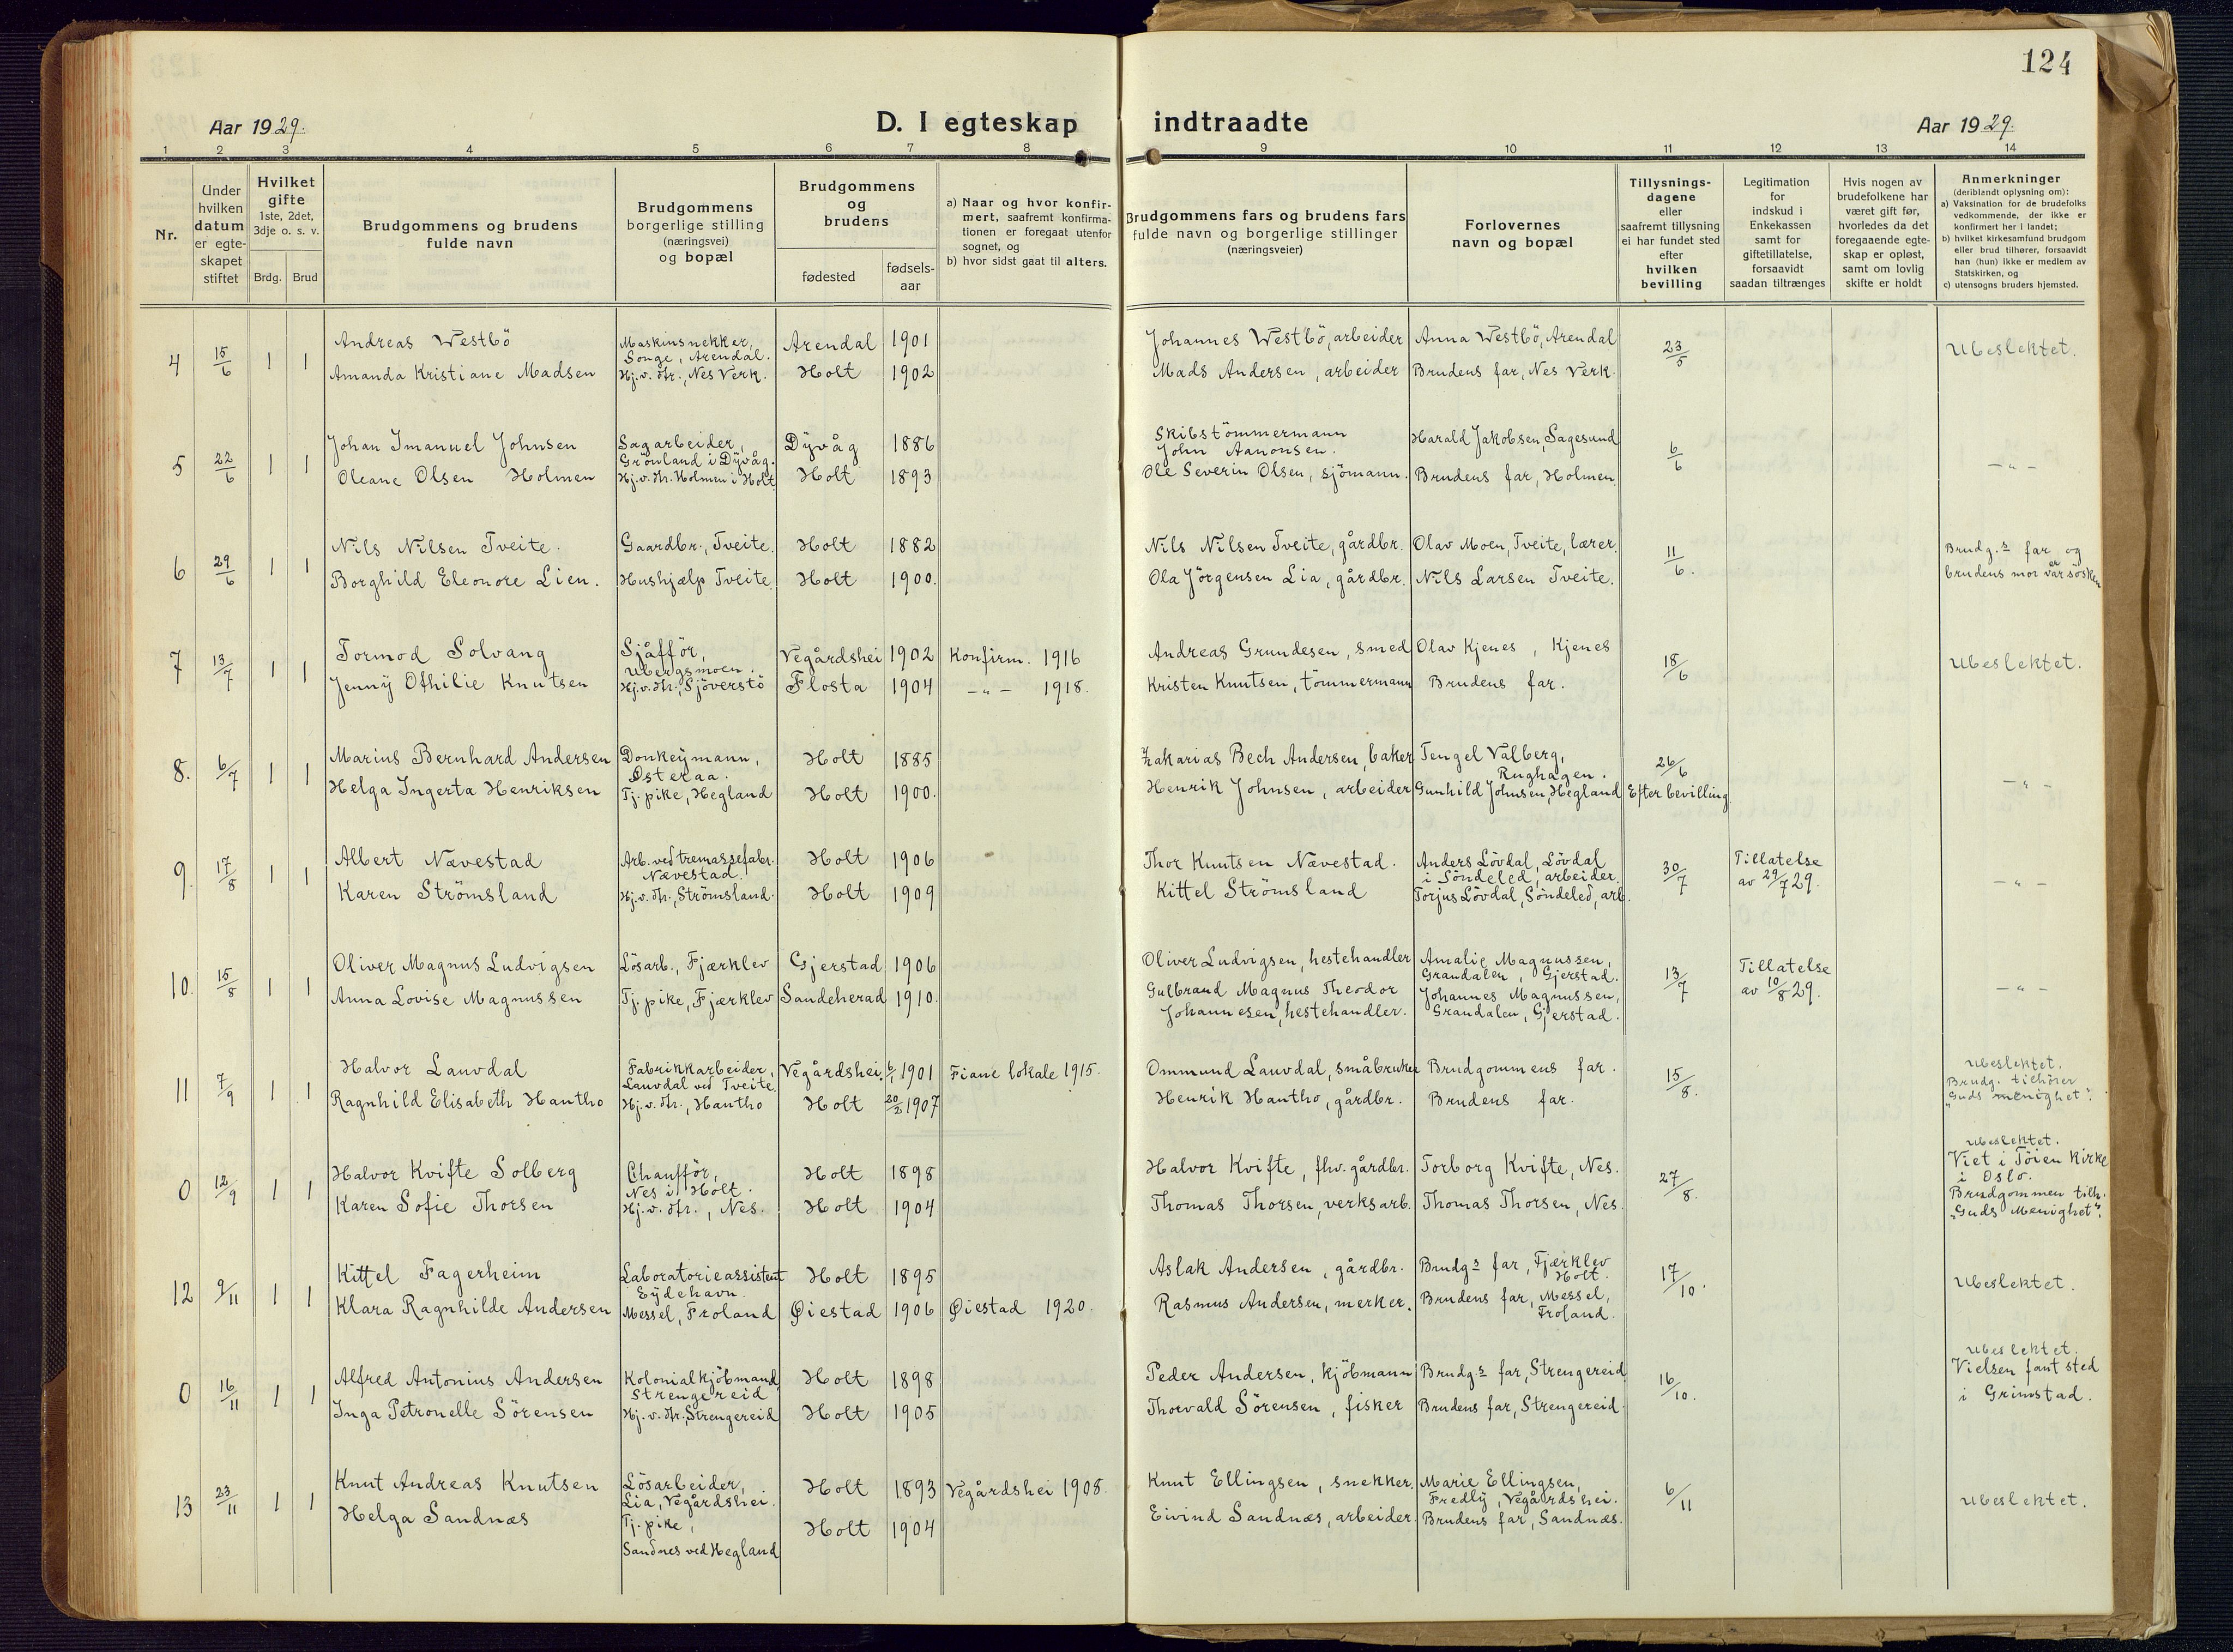 124
Aar 1929.
D. I egteskap indtraadte
Aar 1929.
1 2 3 4 5 6 7 8 9 10 11 12 13 14
Nr.
Under
hvilken
datum
er egte-
skapet
stiftet
Hvilket
gifte
1ste, 2det,
3dje o. s. v.
Brdg. Brud
Brudgommens og brudens
fulde navn
Brudgommens
borgerlige stilling
(næringsvei)
og bopæl
Brudgommens
og
brudens
fødested
fødsels-
aar
a) Naar og hvor konfir-
mert, saafremt konfirma-
tionen er foregaat utenfor
sognet, og
b) hvor sidst gaat til alters.
Brudgommens fars og brudens fars
fulde navn og borgerlige stillinger
(næringsveier)
Forlovernes
navn og bopæl
Tillysnings-
dagene
eller
saafremt tillysning
ei har fundet sted
efter
hvilken
bevilling
Legitimation
for
indskud i
Enkekassen
samt for
giftetillatelse,
forsaavidt
saadan tiltrænges
Hvis nogen av
brudefolkene har
været gift før,
hvorledes da det
foregaaende egte-
skap er opløst,
samt om lovlig
skifte er holdt
Anmerkninger
(deriblandt oplysning om):
a) Vaksination for de brudefolks
vedkommende, der ikke er
konfirmert her i landet;
b) hvilket kirkesamfund brudgom
eller brud tilhører, forsaavidt
han (hun) ikke er medlem av
Statskirken, og
c) utensogns bruders hjemsted.
4 15/6 1 1
Andreas Westbö
Maskinsnekker,
Songe, Arendal.
Arendal 1901
Johannes Westbö, arbeider
Anna Westbö, Arendal
23/5
Ubeslektet.
Amanda Kristiane Madsen
Hj. v. Fr., Nes Verk.
Holt 1902
Mads Andersen, arbeider
Brudens far, Nes Verk.
5 22/6 1 1
Johan Imanuel Johnsen
Sagarbeider,
Grönland i Dÿvåg.
Dÿvåg 1886
Skibstömmermann
John Aanonsen.
Harald Jakobsen, Sagesund
6/6
- „ -
Oleane Olsen Holmen
Hj. v. Fr. Holmen i Holt.
Holt 1893
Ole Severin Olsen, sjömann.
Brudens far, Holmen.
6 29/6 1 1
Nils Nilsen Tveite.
Gaardbr., Tveite.
Holt 1882
Nils Nilsen Tveite, gårdbr.
Olav Moen, Tveite, lærer.
11/6.
Brudg.s far og
brudens mor var er söskn
Borghild Eleonore Lien.
Hushjælp Tveite.
Holt 1900.
Ola Jörgensen Lia, gårdbr.
Nils Larsen Tveite.
7 13/7 1 1
Tormod Solvang
Sjåfför,
Ubergsmoen.
Vegårdshei 1902
Konfirm. 1916
Andreas Grundesen, smed
Olav Kjenes, Kjenes
18/6
Ubeslektet.
Jennÿ Othilie Knutsen
Hj. v. Fr., Sjöverstö
Flosta 1904
- „ - 1918.
Kristen Knutsen, tömmermann
Brudens far.
8. 6/7 1 1
Marius Bernhard Andersen
Donkeÿmann,
Østeraa.
Holt 1885
Zakarias Bech Andersen, baker
Tengel Valberg,
Rughagen.
26/6
- „ -
Helga Ingerta Henriksen
Tj. pike, Hegland
Holt 1900.
Henrik Johnsen, arbeider
Gunhild Johnsen, Hegland
Efter bevilling
9. 17/8 1 1
Albert Nævestad
Arb. ved tremassefabr.
Nævestad.
Holt 1906
Thor Knutsen Nævestad.
Anders Lövdal, Lövdal
i Söndeled, arbeider.
30/7
Tillatelse
av 29/7 29.
- „ -
Karen Strömsland
Hj. v. Fr., Strömsland.
Holt 1909
Kittel Strömsland
Torjus Lövdal, Söndeled, arb.
10. 15/8 1 1
Oliver Magnus Ludvigsen
Lösarb., Fjærklev
Gjerstad 1906
Oliver Ludvigsen, hestehandler
Amalie Magnussen,
Grandalen, Gjerstad.
13/7
Tillatelse
av 10/8 29.
- „ -
Anna Lovise Magnussen
Tj. pike, Fjærklev
Sandeherad 1910.
Gulbrand Magnus Theodor
Johannesen, hestehandler.
Johannes Magnussen,
Grandalen, Gjerstad.
11 7/9 1 1
Halvor Lauvdal
Fabrikkarbeider,
Lauvdal ved Tveite
Vegårdshei. 6/1 1901
Fiane lokale 1915.
Ommund Lauvdal, småbruker
Brudgommens far.
15/8.
Ubeslektet.
Brudg. tilhører
"Guds menighet".
Ragnhild Elisabeth Hantho
Hj. v. Fr., Hantho
Holt 20/2 1907
Henrik Hantho, gårdbr.
Brudens far.
0 12/9 1 1
Halvor Kvifte Solberg
Chaufför,
Nes i Holt.
Holt 1898
Halvor Kvifte, fhv. gårdbr.
Torborg Kvifte, Nes.
27/8.
Ubeslektet.
Viet i Töien Kirke
i Oslo.
Brudgommen tilh.
"Guds Menighet".
Karen Sofie Thorsen
Hj. v. Fr., Nes.
Holt 1904
Thomas Thorsen, verksarb.
Thomas Thorsen, Nes.
12 9/11 1 1
Kittel Fagerheim
Laboratorieassistent
Eÿdehavn.
Holt 1895
Aslak Andersen, gårdbr.
Brudg.s far, Fjærklev
Holt.
17/10.
Ubeslektet.
Klara Ragnhilde Andersen
Messel, Froland
Øiestad 1906
Øiestad 1920.
Rasmus Andersen, merker.
Brudens far, Messel,
Froland.
0 16/11 1 1
Alfred Antonius Andersen
Kolonialkjöbmand,
Strengereid
Holt 1898
Peder Andersen, kjöbmann
Brudg.s far, Strengereid
16/10.
Ubeslektet.
Vielsen fant sted
i Grimstad.
Inga Petronelle Sörensen
Hj. v. Fr., Strengereid
Holt 1905
Thorvald Sörensen, fisker
Brudens far, Strengereid.
13 23/11 1 1
Knut Andreas Knutsen
Lösarbeider,
Lia, Vegårdshei.
Holt 1893
Vegårdshei 1908.
Knut Ellingsen, snekker.
Marie Ellingsen,
Fredlÿ, Vegårdshei.
6/11
Ubeslektet.
Helga Sandnæs
Tj. pike,
Sandnes ved Hegland
Holt 1904
Eivind Sandnæs, arbeider.
Brudens far, Sandnæs.